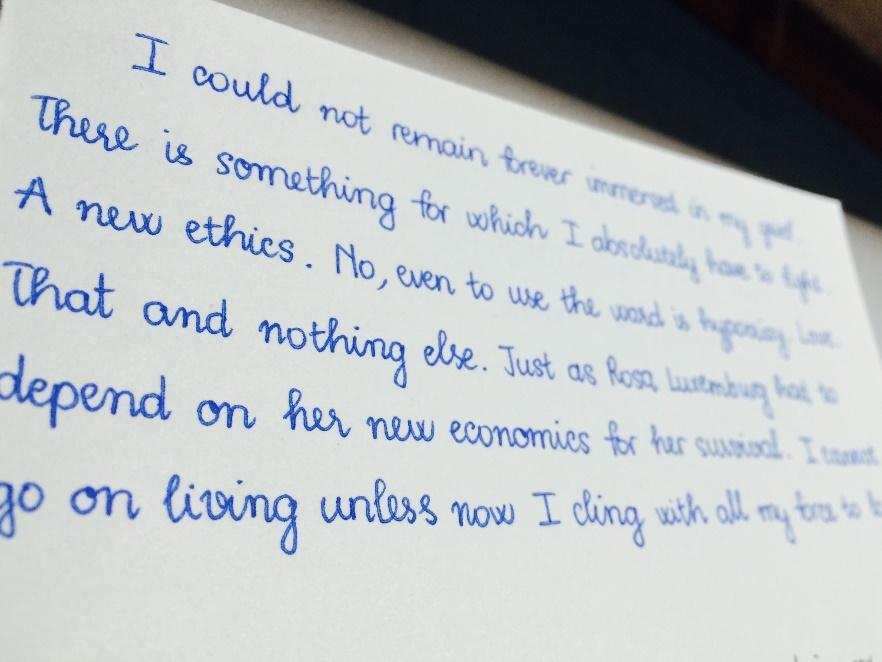 I could not remain forever immersed in my grief.
There is something for which I absolutely have to fight.
A new ethics. No, even to use the word is hypocrisy. Love.
That and nothing else. Just as Rosa Luxemburg had to
depend on her new economics for her survival. I cannot
go on living unless now I cling with all my force to